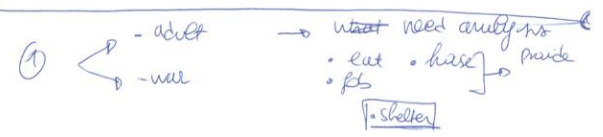 ① - adult → need analysis
- • eat • house → Provide
• job
• shelter